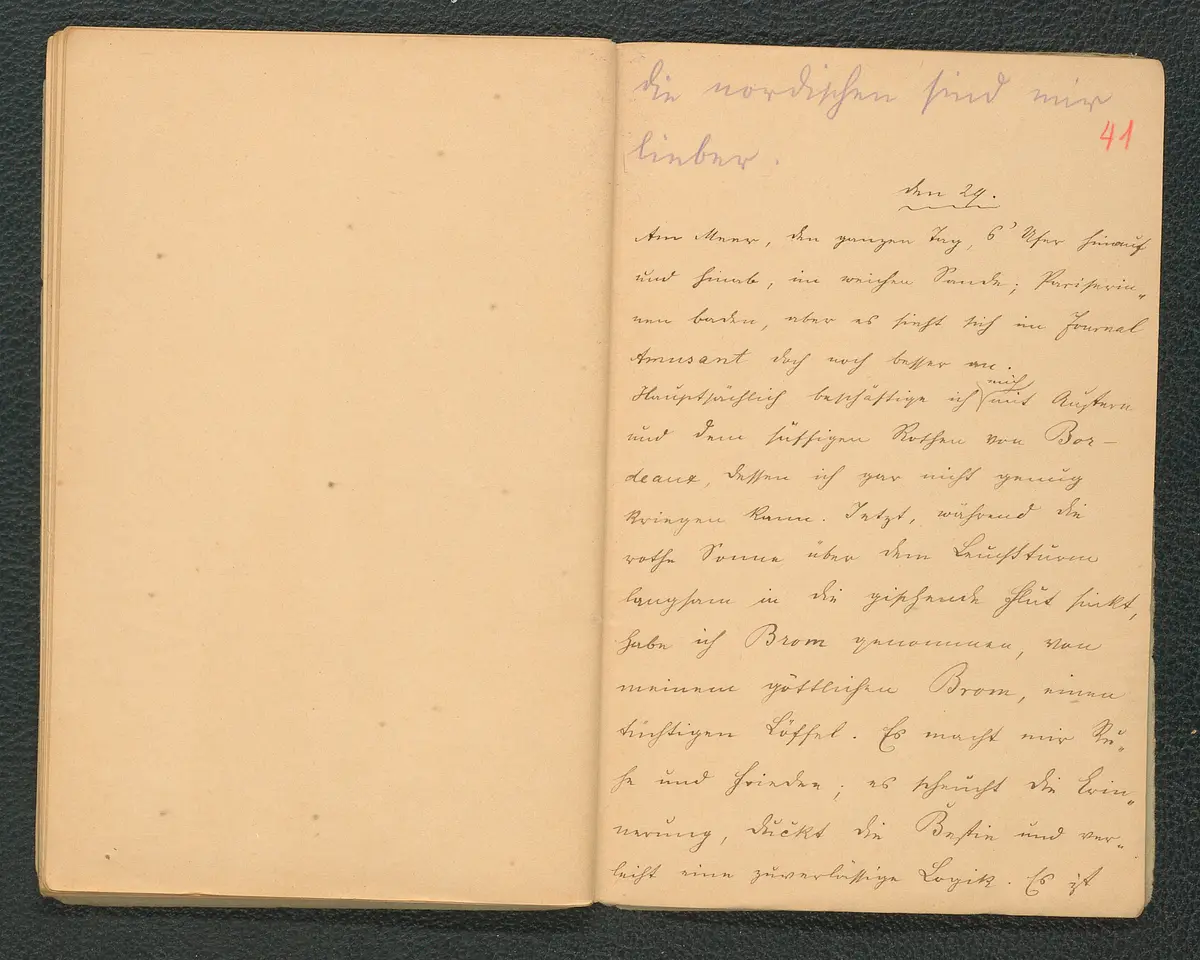 die nordischen sind mir
41
lieber.
den 29.
Am Meer, den ganzen Tag, s' Ufer hinauf
und hinab, im weichen Sande; Pariserin-
nen baden, aber es sieht sich im Journal
Amusant doch noch besser an.
mich
Hauptsächlich beschäftige ich mit Austern
und dem süffigen Rothen von Bor-
deaux, dessen ich gar nicht genug
kriegen kann. Jetzt, während die
rothe Sonne über dem Leuchtturm
langsam in die gischende Flut sinkt,
habe ich Brom genommen, von
meinem göttlichen Brom, einen
tüchtigen Löffel. Es macht mir Ru-
he und Frieden; es scheucht die Erin-
nerung, duckt die Bestie und ver-
leiht eine zuverlässige Logik. Es ist